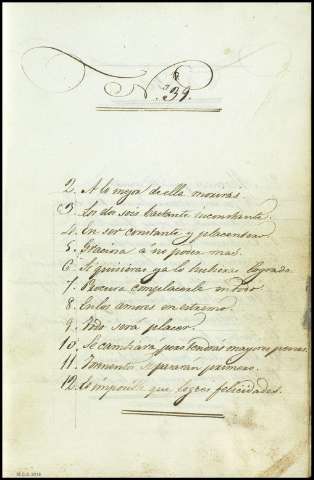 N. 39.
2. A lo mejor de ella moriras.
3. Los dos sois bastante inconstante.
4. En ser constante y placentero
5. Fracina á no poder mas.
6. Si quisieras ya lo hubieras logrado
7. Procura complacerle en todo
8. En los amores en estremo.
9. Todo será placer.
10. Se cambiara, pero tendras mayores penas.
11. Tormentos se pasaran primero.
12. Es imposible que logres felicidades.